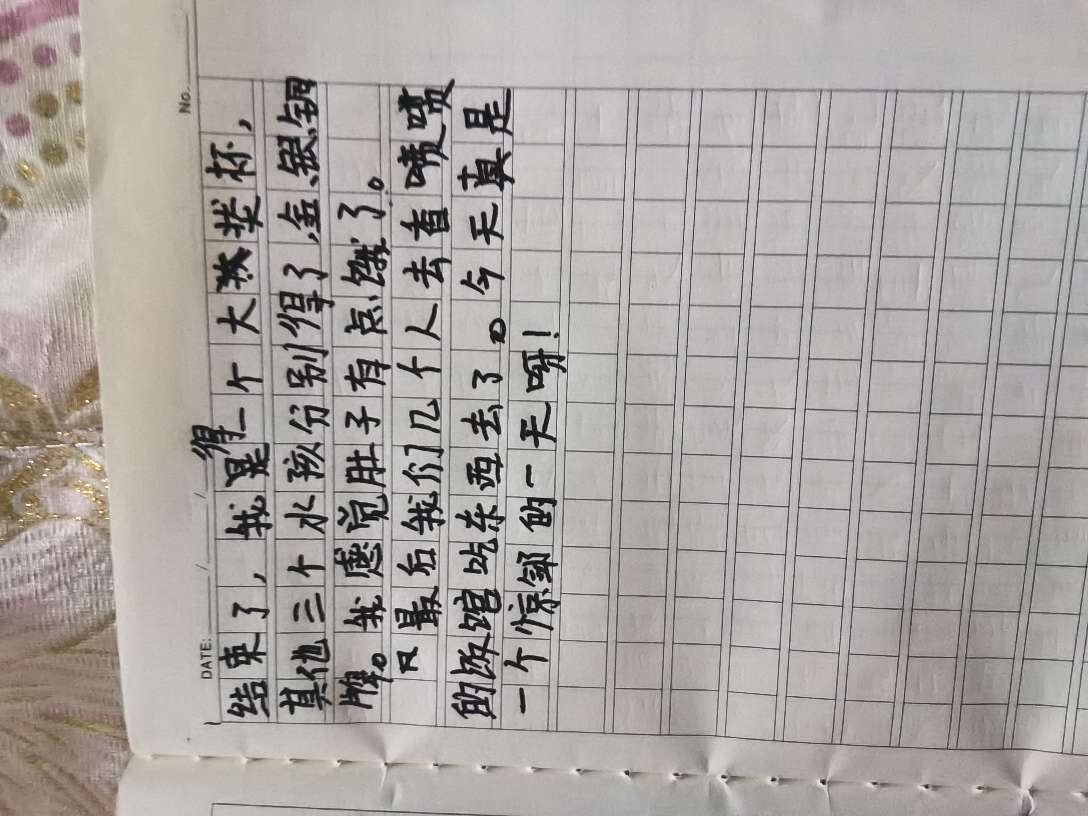 No.
DATE: / /
得
结束了，我是一个大奖杯，
其他三个水孩分别得了、金、银、铜
牌。我感觉肚子有点饿了。
最后我们几个人去香喷喷
的饭馆吃东西去了。今天真是
一个惊的一天呀！